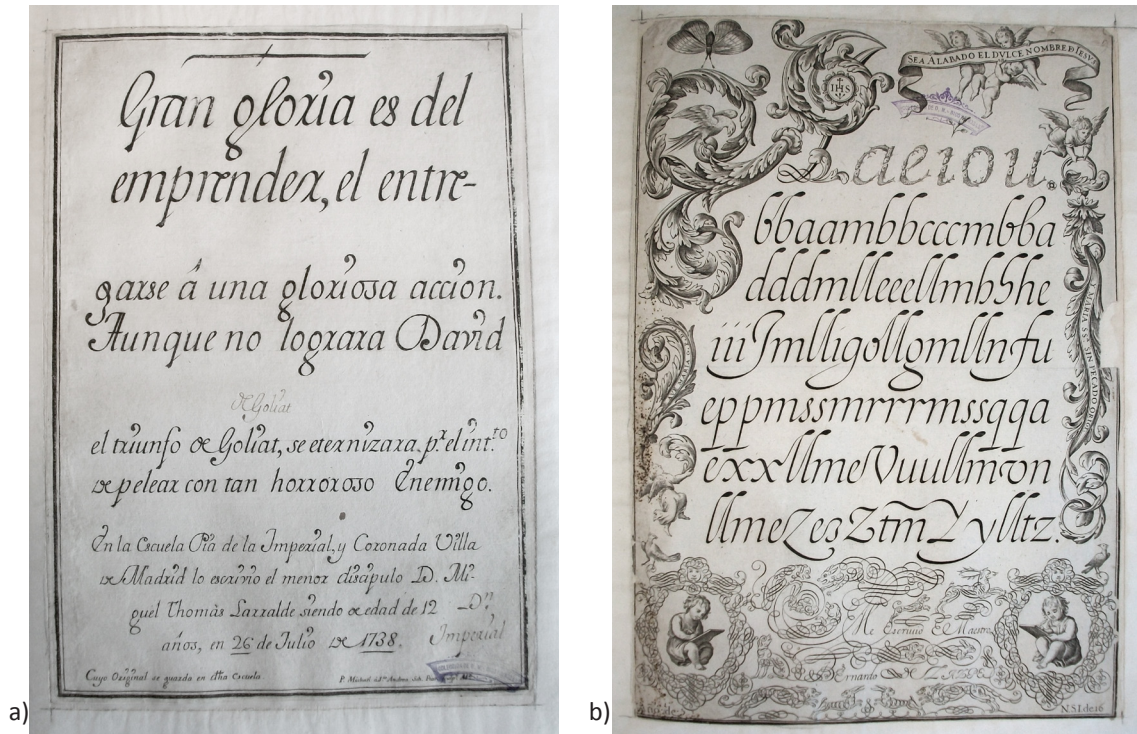 a)
Gran gloria es del
emprender, el entre-
garse á una gloriosa accion.
Aunque no lograra David
de Goliat
el triunfo de Goliat, se eternizara, pr. el int.to
de pelear con tan horroroso Enemigo.
En la Escuela Pia de la Imperial, y Coronada Villa
de Madrid lo escrivio el menor discipulo D. Mi-
guel Thomàs Larralde siendo de edad de 12 Dn
años, en 26 de Julio de 1738. Imperial
Cuyo Original se guarda en dha Escuela.
b)
SEA ALABADO EL DVLCE NOMBRE D IESVS
IHS
aeiou
bbaambbcccmbba
dddmlleeellmbShe
iiiJmlligollgmllnfu
eppmssmrrrmssqqa
exxllmeVuullmvn
llmeZesZtmLyylltz.
MARIA SS. SIN PECADO ORIG
Me Escriuio El Maestro
Bernardo
N.S.I. de 16